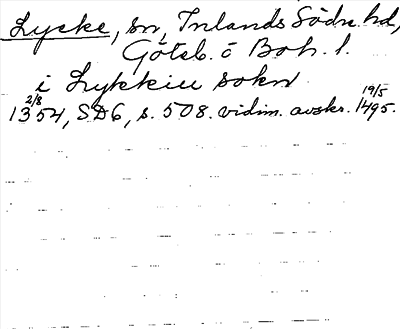 Lycke, sn, Inlands Södra hd,
Göteb. o Boh. l.
i Lykkiu sokn
2/8 1354, SD6, s. 508. vidim. avskr. 19/5 1495.